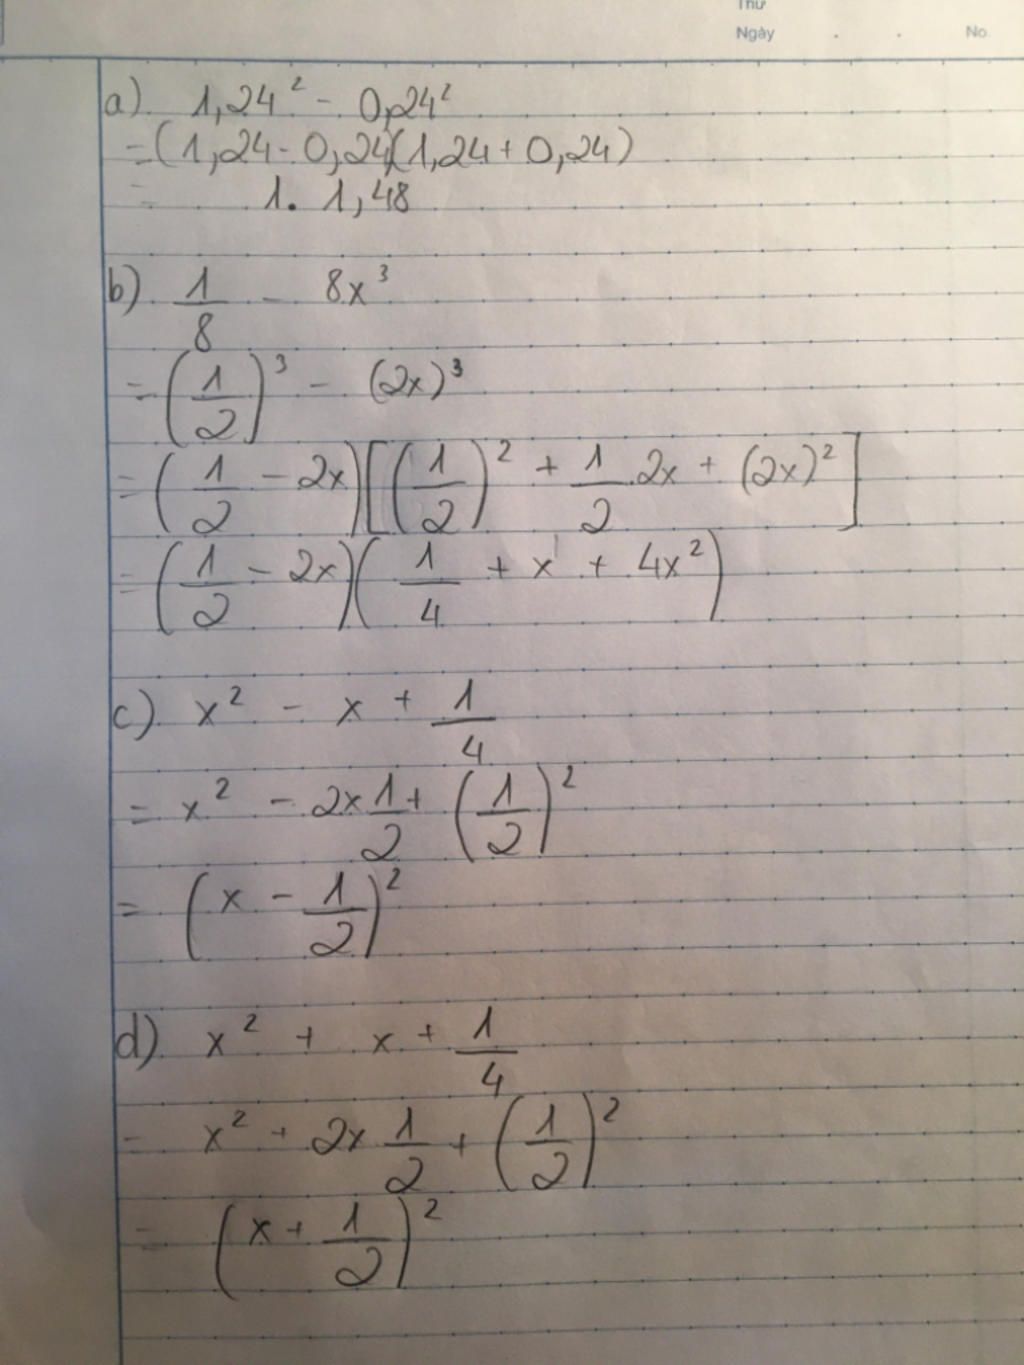 Thứ
Ngày . . No.
a) 1,24² - 0,24²
= (1,24 - 0,24)(1,24 + 0,24)
= 1. 1,48
b) 1/8 - 8x³
= (1/2)³ - (2x)³
= (1/2 - 2x)[(1/2)² + 1/2.2x + (2x)²]
= (1/2 - 2x)(1/4 + x + 4x²)
c) x² - x + 1/4
= x² - 2x 1/2 + (1/2)²
= (x - 1/2)²
d) x² + x + 1/4
= x² + 2x 1/2 + (1/2)²
= (x + 1/2)²